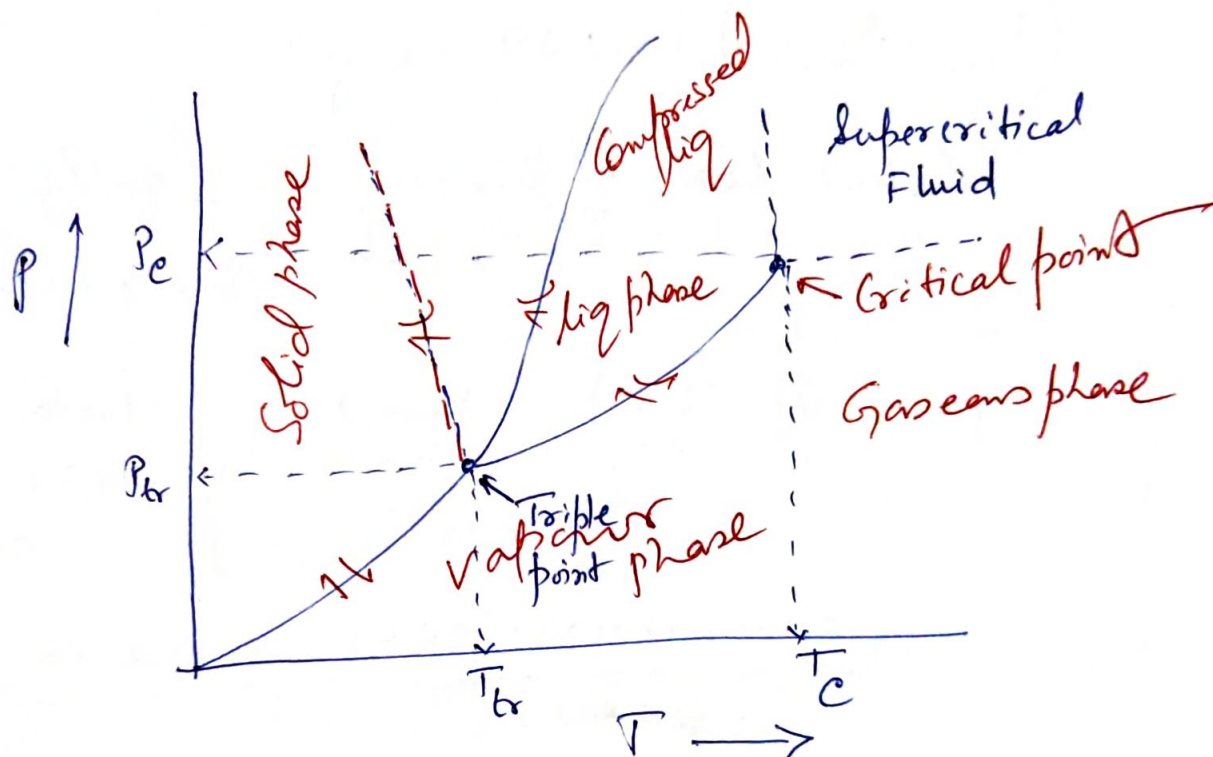 Compressed
liq
Supercritical
Fluid
Solid phase
P
Pc
liq phase
Critical point
Gaseous phase
Ptr
Triple
point
Vapour phase
Ttr
Tc
T